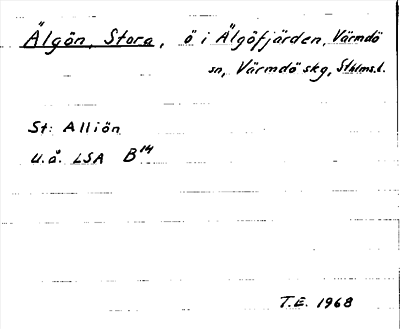 Älgön, Stora, ö i Älgöfjärden, Värmdö
sn, Värmdö skg, Sthlms.l.
St: Alliön
U.å. LSA B14
T.E. 1968